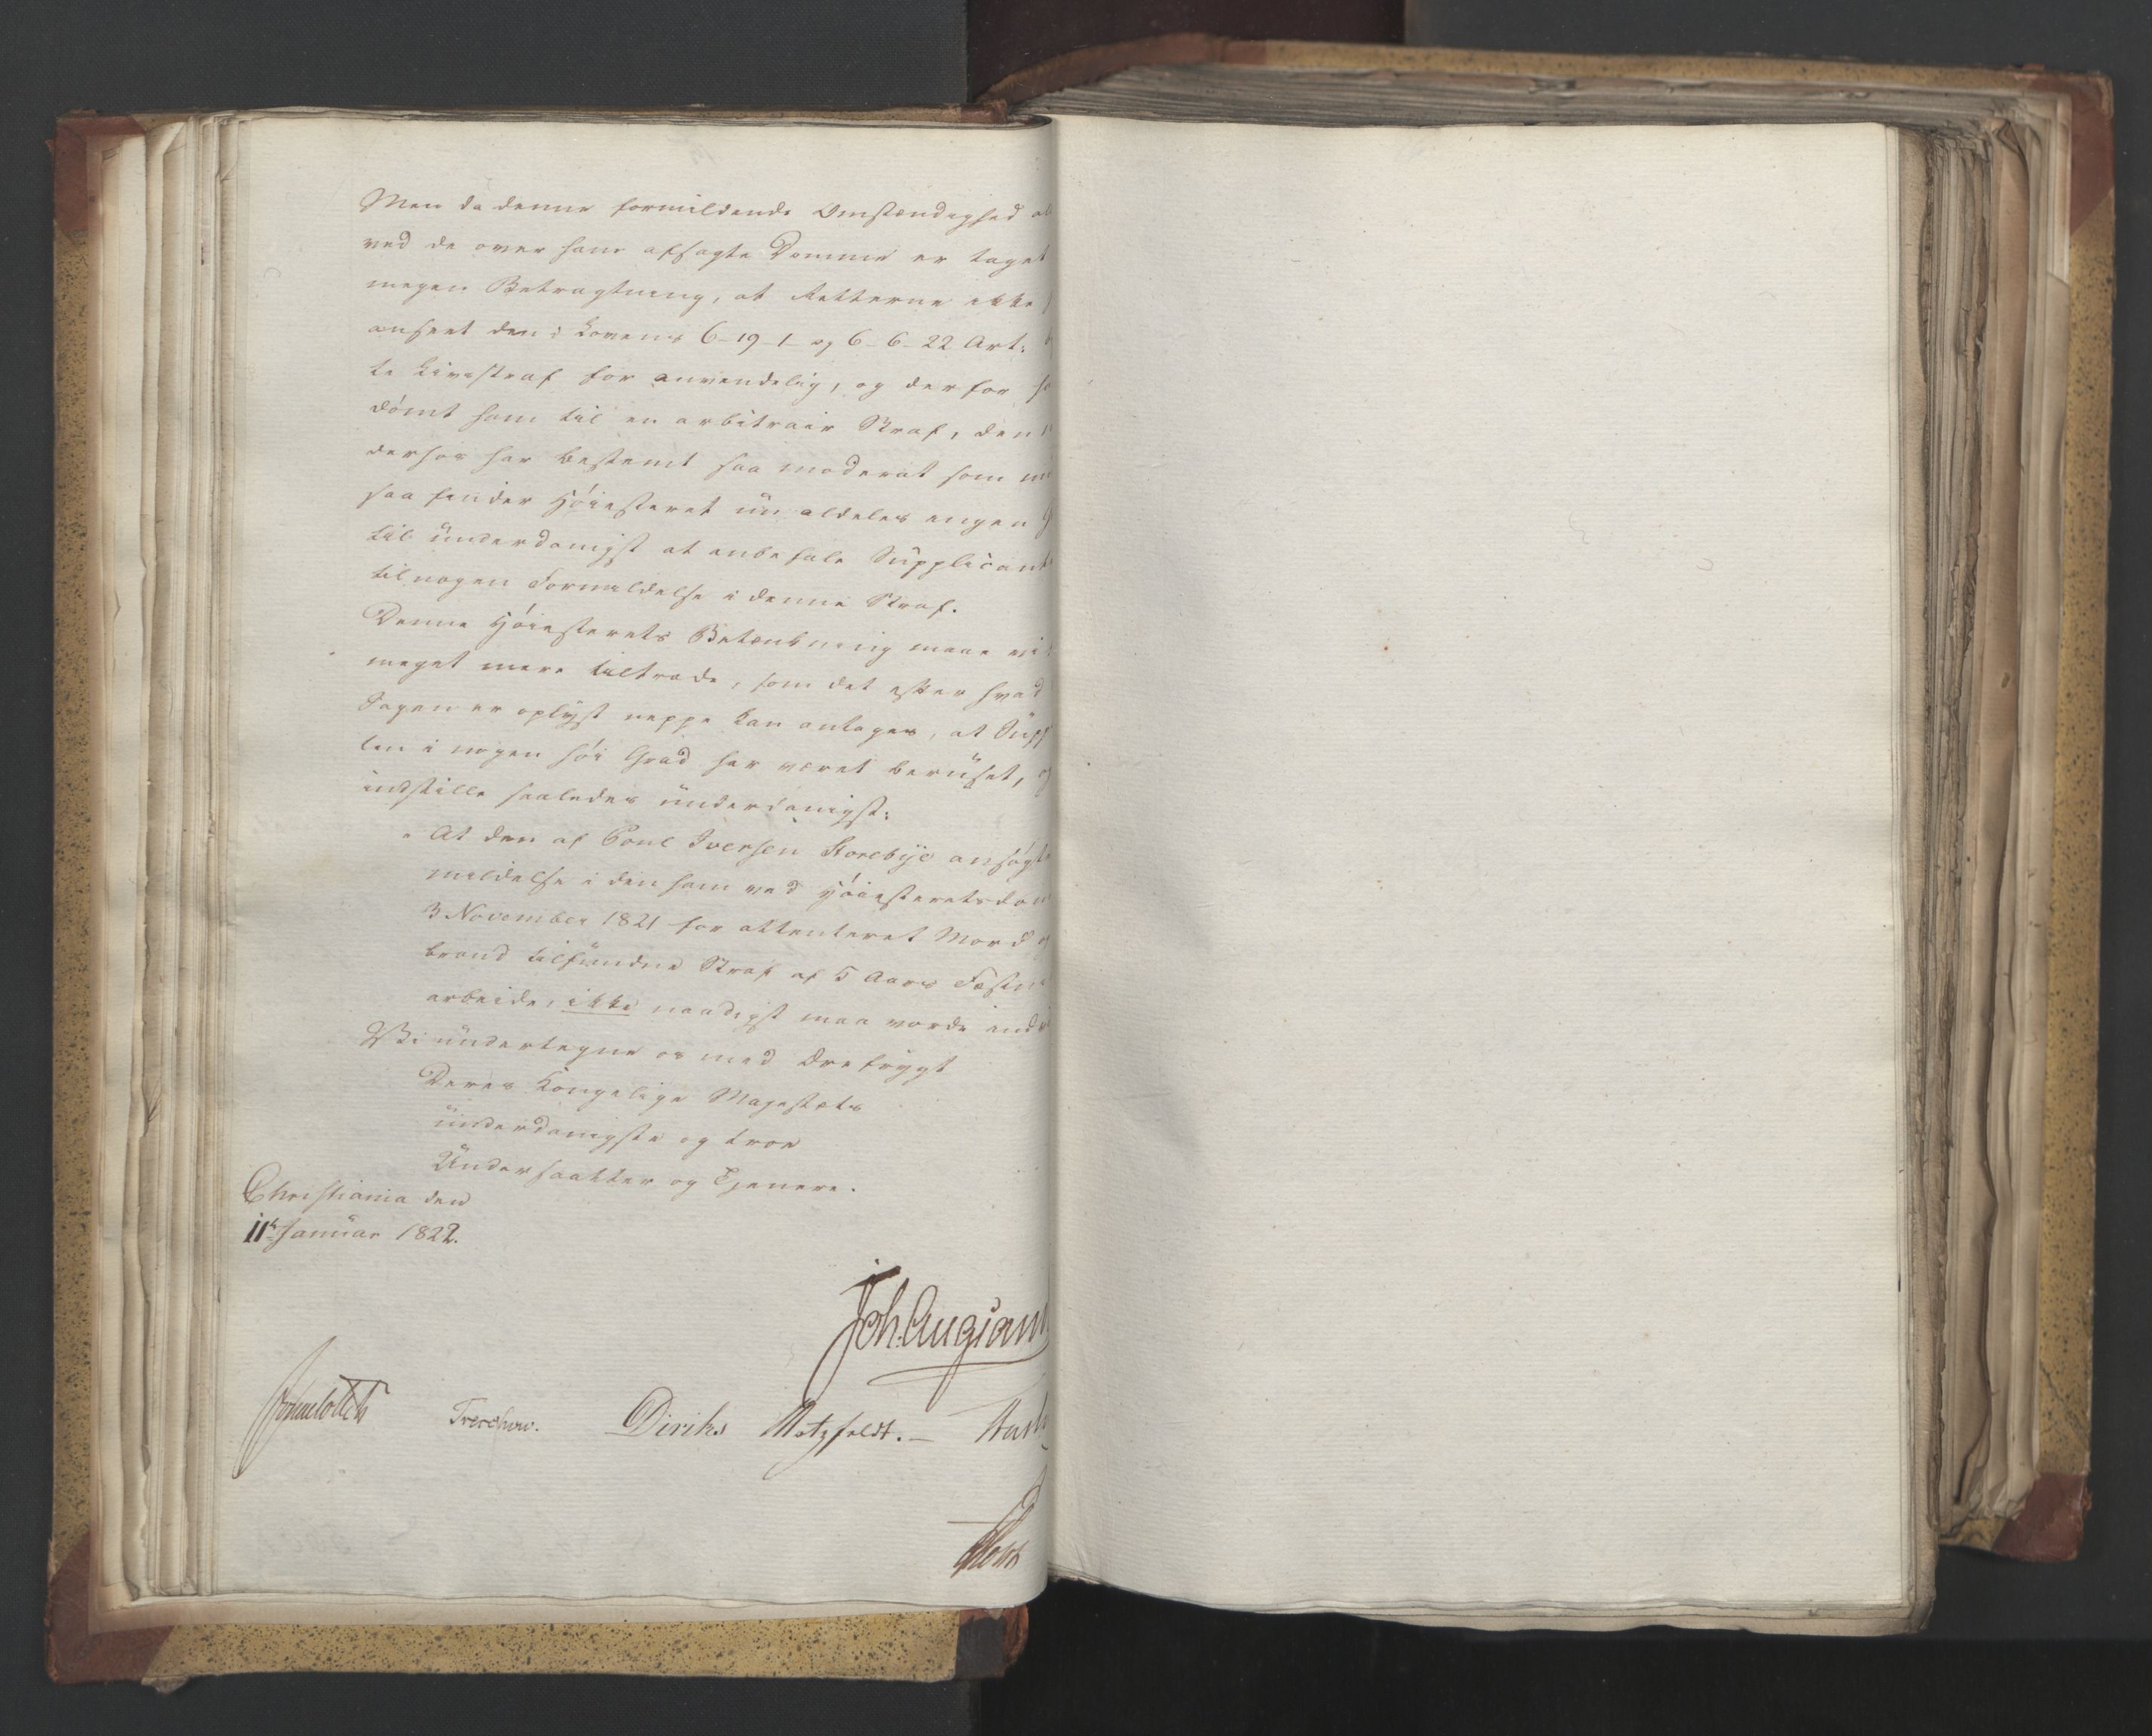 Men da denne formildende Omstændighed al
ved de over ham afsagte Domme er taget
megen Betragtning, at Retterne ikke
anseet den i Lovens 6-19-1 og 6-6-22 Art:
te Livsstraf for anvendelig, og derfor ha
dömt ham til en arbitrair Straf, den
derhos har bestemt saa moderat som
saa finder Höiesteret ün aldeles ingen G
til ünderdanigst at anbefale Süpplicant
til nogen Formildelse i denne Straf.
Denne Höiesterets Betænkning maae vi
meget mere tiltræde, som det efter hvad
Sagen er oplÿst neppe kan antages, at Süpp
ten i nogen höi Grad har været berüset, og
indstille saaledes ünderdanigst:
" At den af Poul Iversen Storebÿe ansögte
mildelse i den ham ved Höiesteretsdom
3 November 1821 for attenteret Mord og
brand tilfündne Straf af 5 Aars Fæstn
arbeide, ikke naadigst maa vorde ind
Vi ündertegne os med Ærefrÿgt
Deres Kongelige Majestæts
ünderdanigste og troe
Undersaatter og Tjenere.
Christiania den
11te Januar 1822.
Joh. Aug Sand
Sommerfeldt Treschow. Diriks Motzfeldt. —
Holst